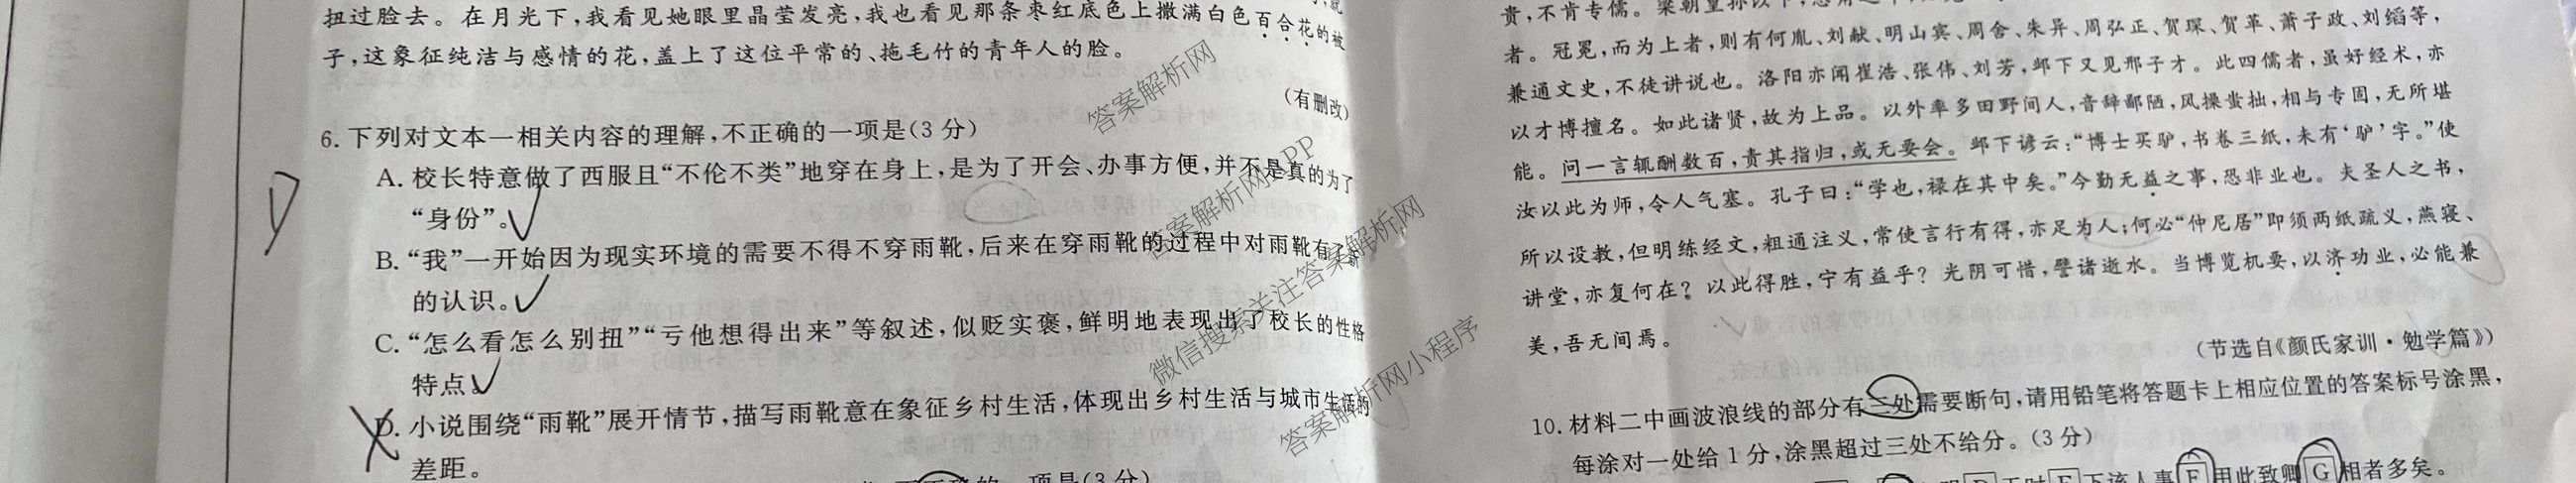 扭过脸去。在月光下,我看见她眼里晶莹发亮,我也看见那条枣红底色上撒满白色百合花的被
子,这象征纯洁与感情的花,盖上了这位平常的、拖毛竹的青年人的脸。
(有删改)
6. 下列对文本一相关内容的理解,不正确的一项是(3分)
A. 校长特意做了西服且“不伦不类”地穿在身上,是为了开会、办事方便,并不是真的为了
“身份”。
B. “我”一开始因为现实环境的需要不得不穿雨靴,后来在穿雨靴的过程中对雨靴有了新
的认识。
C. “怎么看怎么别扭”“亏他想得出来”等叙述,似贬实褒,鲜明地表现出了校长的性格
特点。
D. 小说围绕“雨靴”展开情节,描写雨靴意在象征乡村生活,体现出乡村生活与城市生活的
差距。
D
贵,不肯专儒。梁朝皇孙以下,
者。冠冕,而为上者,则有何胤、刘献、明山宾、周舍、朱异、周弘正、贺琛、贺革、萧子政、刘绍等,
兼通文史,不徒讲说也。洛阳亦闻崔浩、张伟、刘芳,邺下又见邢子才。此四儒者,虽好经术,亦
以才博擅名。如此诸贤,故为上品。以外率多田野间人,音辞鄙陋,风操蚩拙,相与专固,无所堪
能。问一言辄酬数百,责其指归,或无要会。邺下谚云:“博士买驴,书卷三纸,未有‘驴’字。”使
汝以此为师,令人气塞。孔子曰:“学也,禄在其中矣。”今勤无益之事,恐非业也。夫圣人之书,
所以设教,但明练经文,粗通注义,常使言行有得,亦足为人;何必“仲尼居”即须两纸疏义,燕寝、
讲堂,亦复何在?以此得胜,宁有益乎?光阴可惜,譬诸逝水。当博览机要,以济功业,必能兼
美,吾无间焉。
(节选自《颜氏家训·勉学篇》)
10. 材料二中画波浪线的部分有三处需要断句,请用铅笔将答题卡上相应位置的答案标号涂黑,
每涂对一处给1分,涂黑超过三处不给分。(3分)
下该人事 F 用此致卿 G 相者多矣。
答案解析网
答案解析网APP
微信搜索关注答案解析网
答案解析网小程序